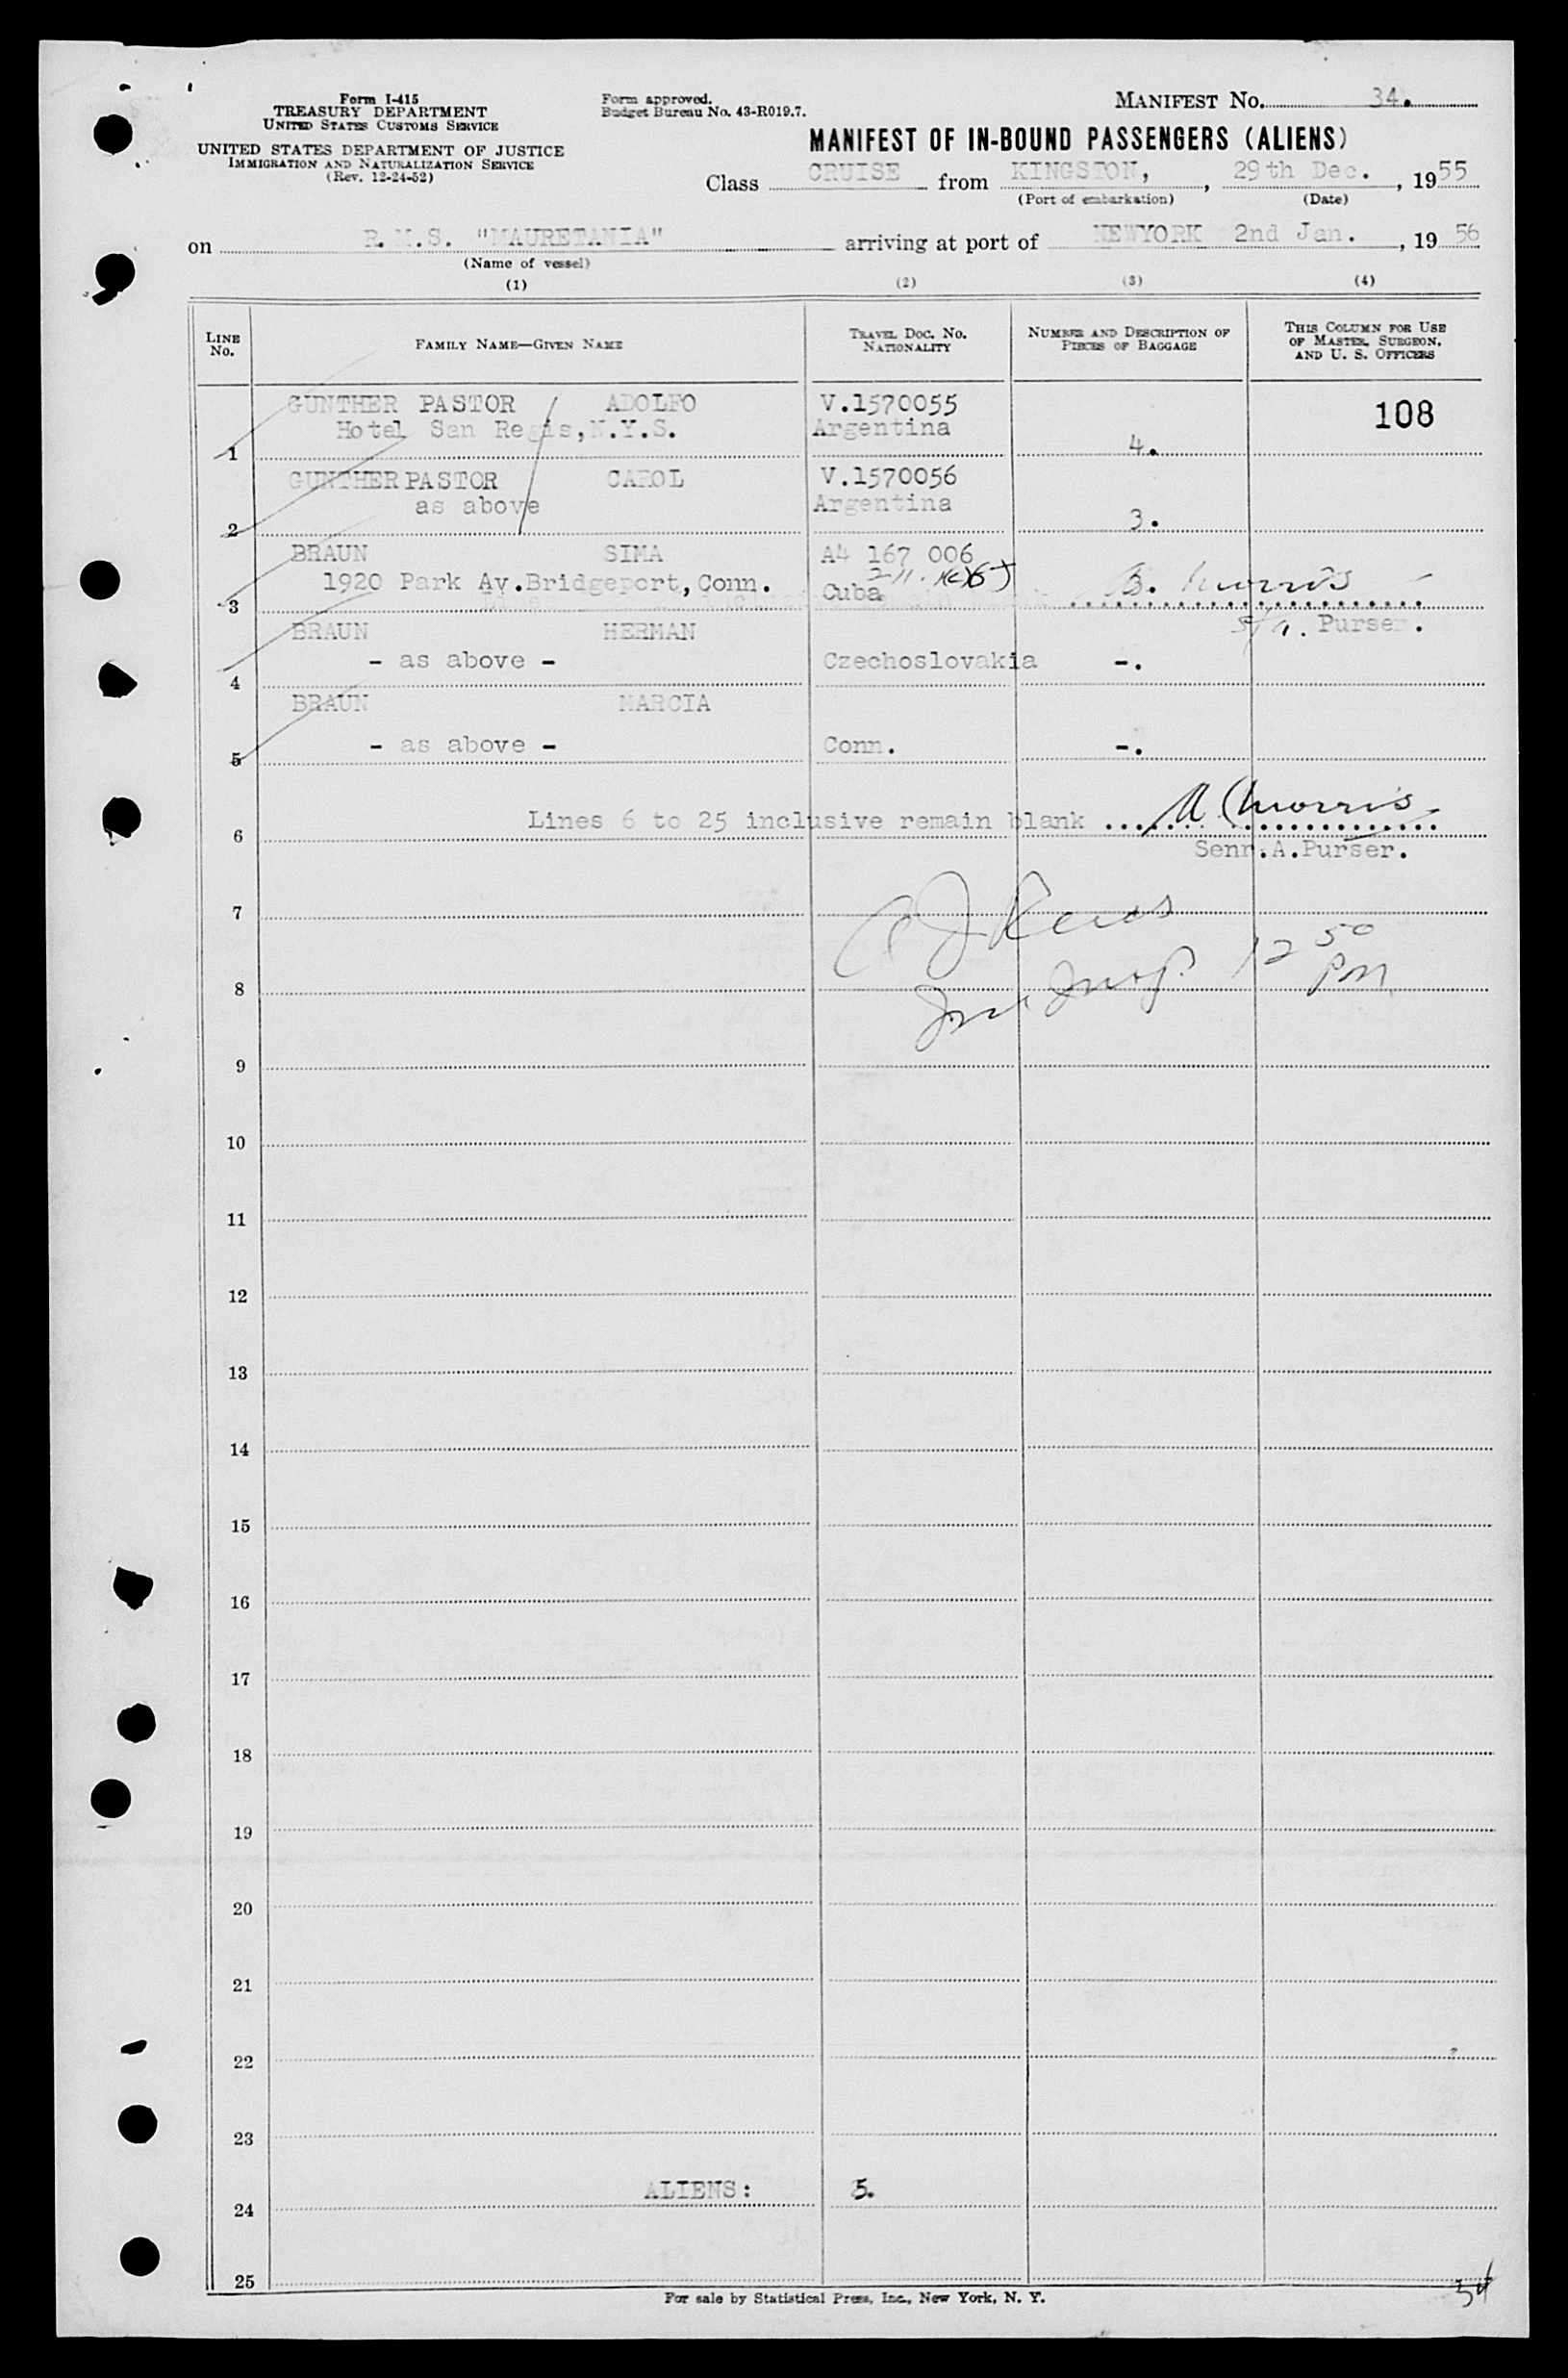 Form I-415
TREASURY DEPARTMENT
UNITED STATES CUSTOMS SERVICE
UNITED STATES DEPARTMENT OF JUSTICE
IMMIGRATION AND NATURALIZATION SERVICE
(Rev. 12-24-52)
Form approved.
Budget Bureau No. 43-R019.7.
MANIFEST No. 34.
MANIFEST OF IN-BOUND PASSENGERS (ALIENS)
Class CRUISE from KINGSTON, , 29th Dec. , 1955
(Port of embarkation) (Date)
on R.M.S. "MAURETANIA" arriving at port of NEWYORK 2nd Jan. , 19 56
(Name of vessel)
(1) (2) (3) (4)
LINE No. FAMILY NAME—GIVEN NAME TRAVEL DOC. No. NATIONALITY NUMBER AND DESCRIPTION OF PIECES OF BAGGAGE THIS COLUMN FOR USE OF MASTER, SURGEON, AND U. S. OFFICERS
GUNTHER PASTOR ADOLFO V.1570055 108
Hotel San Regis,N.Y.S. Argentina
1 4.
GUNTHER PASTOR CAROL V.1570056
as above Argentina
2 3.
BRAUN SIMA A4 167 006
1920 Park Av.Bridgeport,Conn. Cuba Morris
3
BRAUN HERMAN S/A. Purser.
- as above - Czechoslovakia -.
4
BRAUN MARCIA
- as above - Conn. -.
5
Lines 6 to 25 inclusive remain blank Morris
6
Senr.A.Purser.
7
12 50 PM
8
9
10
11
12
13
14
15
16
17
18
19
20
21
22
23
ALIENS: 5.
24
25
For sale by Statistical Press, Inc., New York, N. Y.
34